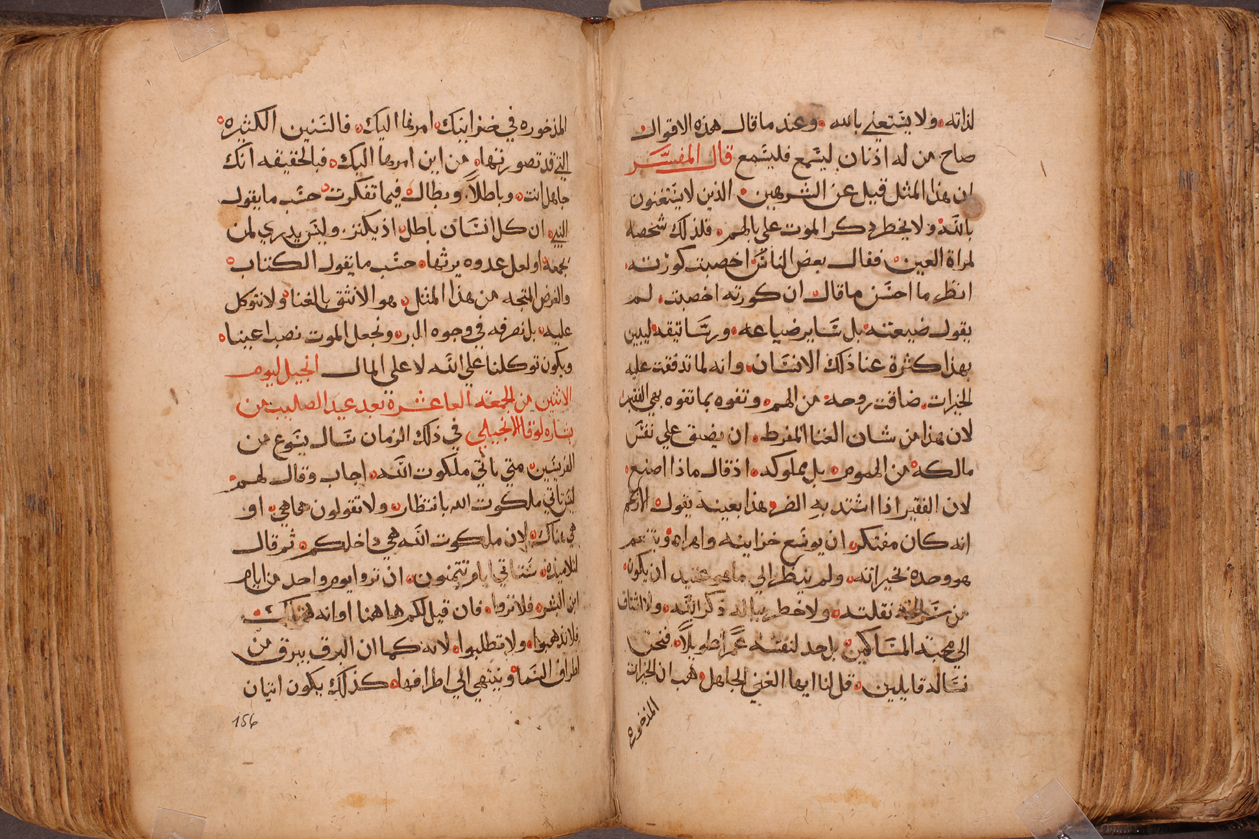 لذاته ولا يستغني بالله وعند ما قال هذه الاقوال
صاح من له اذنان ليسمع فليسمع قال المفسر
ان هذا المثل قيل عن الشرهين الذين لا يستغنون
بالله ولا يخطر ذكر الموت علي بالهم فلذلك شخصه
لمراة العين فقال بعض الناس اخصبت كورته
انظر ما احسن ما قال ان كورته اخصبت لم
يقول ضيعته بل ساير ضياعه ورساتيقه ليبين
بهذا كثرة غنا ذلك الانسان وانه لما تدفقت عليه
الخيرات ضاقت روحه من الهم وتفوه بما تفوه به الفقير
لان هذا من شان الغنا المفرط ان يضيق علي نفس
مالكه من الهموم بل مملوكه اذ قال ماذا اصنع
لان الفقير اذا اشتد به الضر هذا بعينه يقول
انه كان مفتكر ان يوسع خزاينه واهراه ويتنعم
هو وحده بخيراته ولم ينظر الي ما هو عتيد ان يكون
من نقلته ولا خطر بباله ذكر الله ولا
الي محبة المساكين بل حد لنفسه عمرا طويلا فنحن
نساله قايلين قل لنا ايها الغني الجاهل هب ان الخيرات
المذخوره
المذخوره في خزاينك امرها اليك فالسنين الكثيره
التي قد تصورتها من اين امرها اليك فبالحقيقه انك
جاهل انت وباطلا وبطال فيما تفكرت حسب ما يقول
النبي ان كل انسان باطل اذ يكنز وليس يدري لمن
يجمعه او لعل عدوه يرثها حسب ما يقول الكتاب
والغرض المتجه من هذا المثل هو الا نثق بالغنا ولا نتوكل
عليه بل نصرفه في وجوه البر ونجعل الموت نصب اعيننا
ويكون توكلنا علي الله لا علي المال انجيل اليوم
الاثنين من الجمعه العاشرة بعد عيد الصليب من
بشاره لوقا الانجيلي في ذلك الزمان سال يسوع من
الفريسين متي ياتي ملكوت الله اجاب وقال لهم
ليس تاتي ملكوت الله بانتظار ولا تقولون هاهي او
هي هناك لان ملكوت الله هي داخلكم ثم قال
لتلاميذه ستاتي ايام تتمنون ان تروا يوم واحد من ايام
ابن البشر فلا تروا فان قيل لكم ها هنا او انه هناك
فلا تذهبوا ولا تطلبوا لانه كما ان البرق يبرق من
اطراف السما وينتهي الي اطرافها كذلك يكون اتيان
156